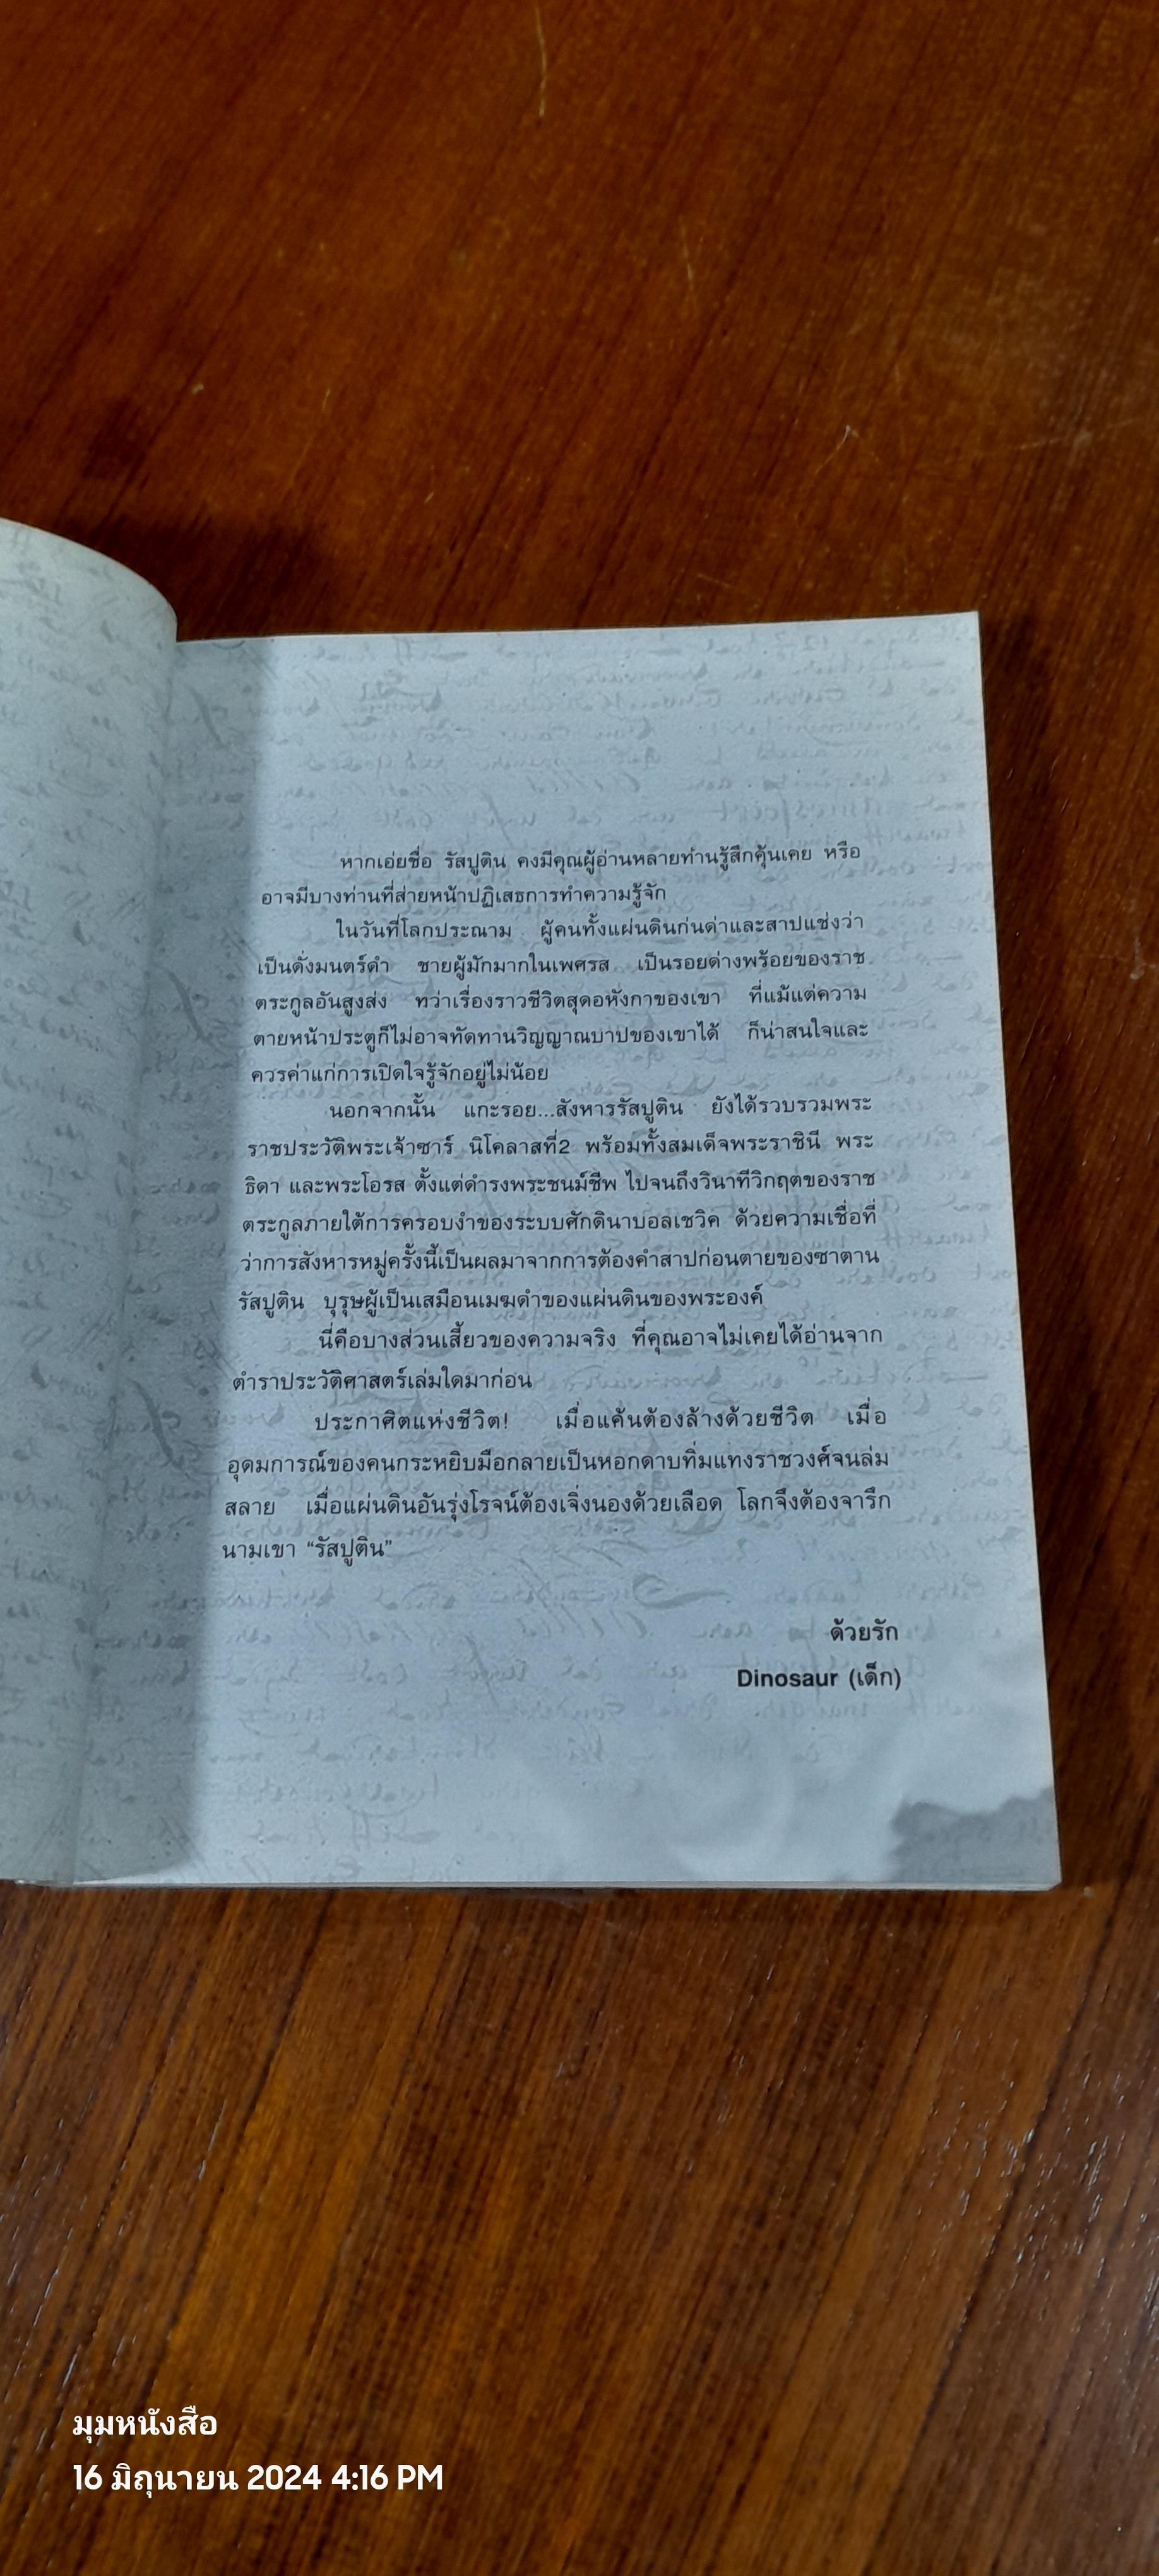 หากเอ่ยชื่อ รัสปูติน คงมีคุณผู้อ่านหลายท่านรู้สึกคุ้นเคย หรือ
อาจมีบางท่านที่ส่ายหน้าปฏิเสธการทำความรู้จัก
ในวันที่โลกประณาม ผู้คนทั้งแผ่นดินก่นด่าและสาปแช่งว่า
เป็นดั่งมนตร์ดำ ชายผู้มักมากในเพศรส เป็นรอยด่างพร้อยของราช
ตระกูลอันสูงส่ง ทว่าเรื่องราวชีวิตสุดอหังกาของเขา ที่แม้แต่ความ
ตายหน้าประตูก็ไม่อาจทัดทานวิญญาณบาปของเขาได้ ก็น่าสนใจและ
ควรค่าแก่การเปิดใจรู้จักอยู่ไม่น้อย
นอกจากนั้น แกะรอย...สังหารรัสปูติน ยังได้รวบรวมพระ
ราชประวัติพระเจ้าซาร์ นิโคลาสที่2 พร้อมทั้งสมเด็จพระราชินี พระ
ธิดา และพระโอรส ตั้งแต่ดำรงพระชนม์ชีพ ไปจนถึงวินาทีวิกฤตของราช
ตระกูลภายใต้การครอบงำของระบบศักดินาบอลเชวิค ด้วยความเชื่อที่
ว่าการสังหารหมู่ครั้งนี้เป็นผลมาจากการต้องคำสาปก่อนตายของซาตาน
รัสปูติน บุรุษผู้เป็นเสมือนเมฆดำของแผ่นดินของพระองค์
นี่คือบางส่วนเสี้ยวของความจริง ที่คุณอาจไม่เคยได้อ่านจาก
ตำราประวัติศาสตร์เล่มใดมาก่อน
ประกาศิตแห่งชีวิต! เมื่อแค้นต้องล้างด้วยชีวิต เมื่อ
อุดมการณ์ของคนกระหยิบมือกลายเป็นหอกดาบทิ่มแทงราชวงศ์จนล่ม
สลาย เมื่อแผ่นดินอันรุ่งโรจน์ต้องเจิ่งนองด้วยเลือด โลกจึงต้องจารึก
นามเขา “รัสปูติน”
ด้วยรัก
Dinosaur (เด็ก)
มุมหนังสือ
16 มิถุนายน 2024 4:16 PM